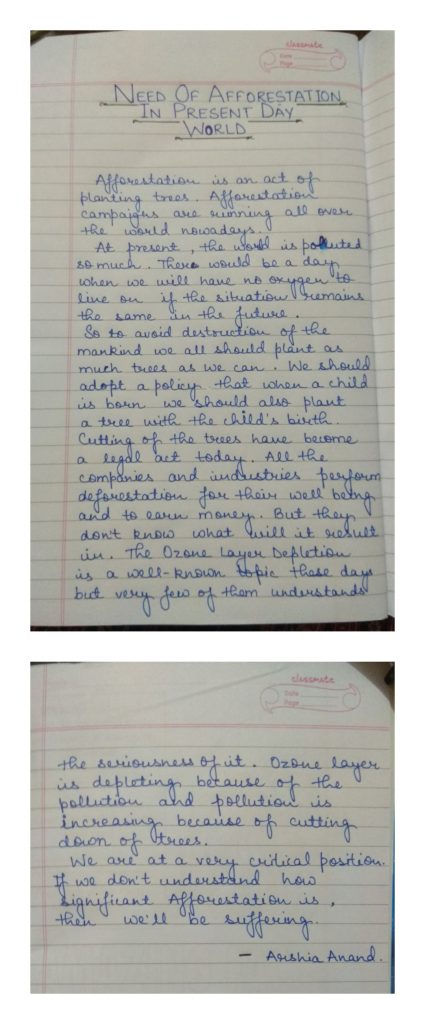 classmate
Date
Page
NEED OF AFFORESTATION
IN PRESENT DAY
WORLD
Afforestation is an act of
planting trees. Afforestation
campaigns are running all over
the world nowadays.
At present, the world is polluted
so much. There would be a day
when we will have no oxygen to
live on if the situation remains
the same in the future.
So to avoid destruction of the
mankind we all should plant as
much trees as we can. We should
adopt a policy that when a child
is born we should also plant
a tree with the child's birth.
Cutting of the trees have become
a legal act today. All the
companies and industries perform
deforestation for their well being
and to earn money. But they
don't know what will it result
in. The Ozone Layer Depletion
is a well-known topic these days
but very few of them understands
classmate
Date
Page
the seriousness of it. Ozone layer
is depleting because of the
pollution and pollution is
increasing because of cutting
down of trees.
We are at a very critical position.
If we don't understand how
significant Afforestation is,
then we'll be suffering.
- Arshia Anand.